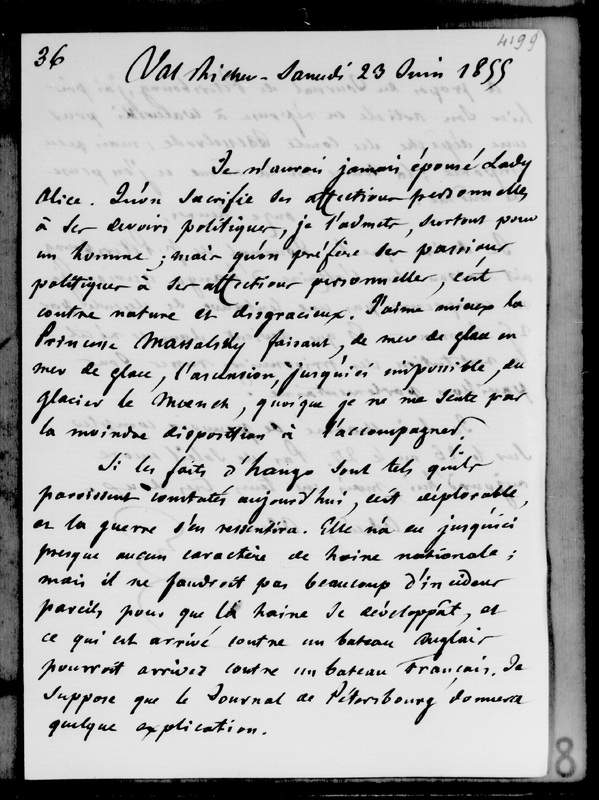 4199
36
Val Richer - Samedi 23 Juin 1855
Je n'aurois jamais épousé Lady
Alice. Qu'on sacrifie ses affections personnelles
à ses devoirs politiques, je l'admets, surtout pour
un homme ; mais qu'on préfère ses passions
politiques à ses affections personnelles, c'est
contre nature et disgracieux. J'aime mieux la
Princesse Massalsky faisant, de mer de glace en
mer de glace, l'ascension, jusqu'ici impossible, du
glacier le Mœnch, quoique je ne me sente pas
la moindre disposition à l'accompagner.
Si les faits d'hango sont tels qu'ils
paroissent constatés aujourd'hui, c'est déplorable,
et la guerre s'en ressentira. Elle n'a eu jusqu'ici
presque aucun caractère de haine nationale ;
mais il ne faudroit pas beaucoup d'incidens
pareils pour que la haine se développât, et
ce qui est arrivé contre un bateau Anglais
pourroit arriver contre un bateau Français. Je
suppose que le Journal de Pétersbourg donnera
quelque explication.
8